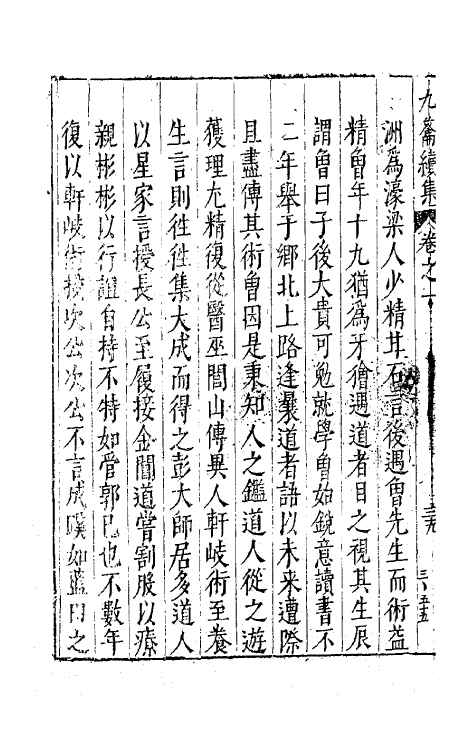 九籥續集 卷之一
洲爲濠梁人少精其石言後遇魯先生而術益
精魯年十九猶爲牙獪遇道者目之視其生辰
謂魯曰子後大貴可勉就學魯始銳意讀書不
二年舉于鄉北上路逢曩道者語以未来遭際
且盡傳其術魯因是秉知人之鑑道人從之遊
獲理尢精復從醫巫閭山傳異人軒岐術至養
生言則徃徃集大成而得之彭大師居多道人
以星家言授長公至履接金閶道嘗割股以療
親彬彬以行誼自持不特如管郭已也不數年
復以軒岐術授次公次公不言成蹊如藍田之